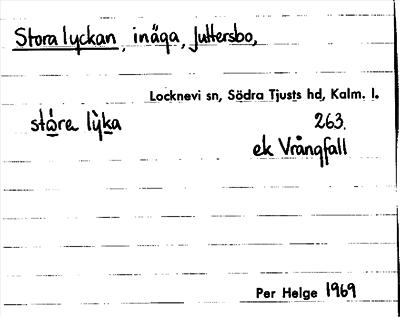 Stora lyckan, inäga, Juttersbo,
Locknevi sn, Södra Tjusts hd, Kalm. l.
stó̲re lỳk̲a 263.
ek Vrångfall
Per Helge 1969